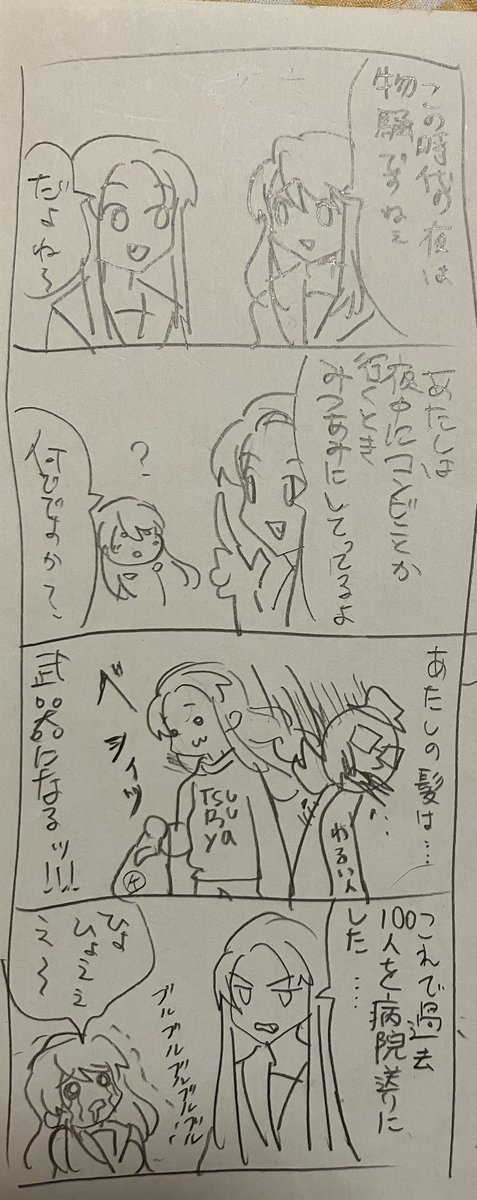 この時代の夜は
物騒ですねぇ
だよね～
あたしは
夜中にコンビニとか
行くとき
みつあみにしてってるよ
?
何でですか?
あたしの髪は…
わるい人
Tsu
Ba
Ku
ya
ベシィッ
武器になるッ!!!
これで過去
100人を病院送りに
した……
ひょ
ひょええ
え～
ブルブルブル
ブルブルブルブル